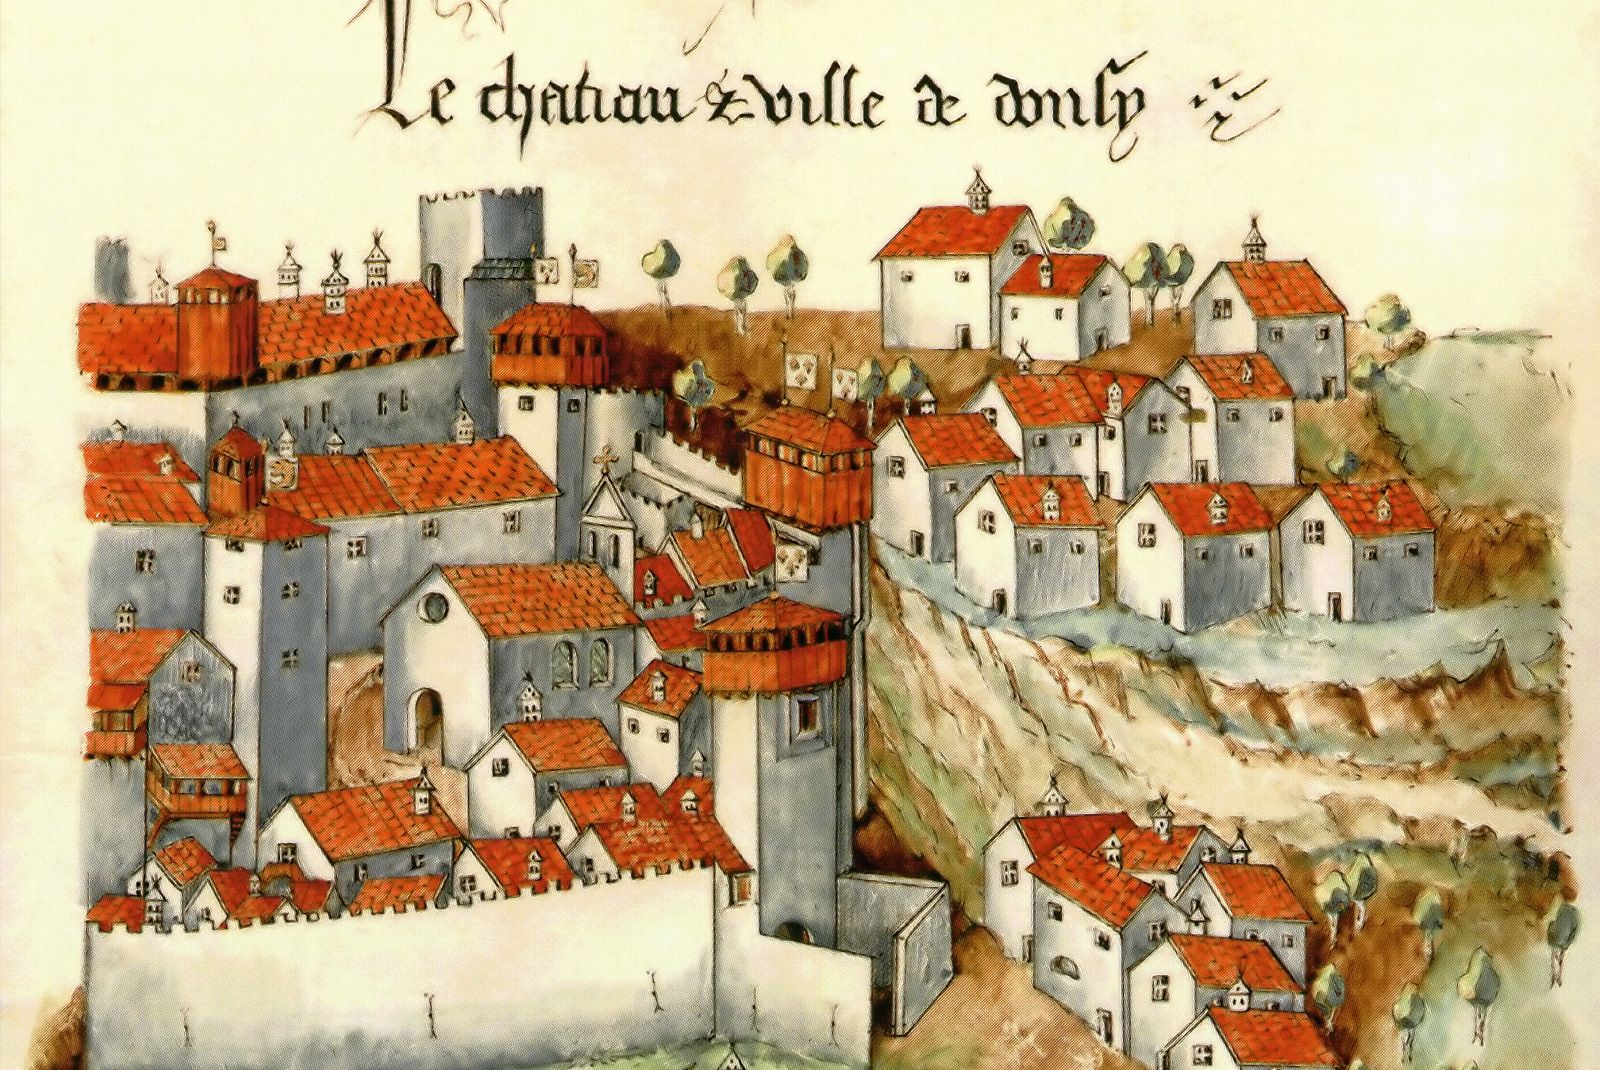 Le chatiau & ville de donsy